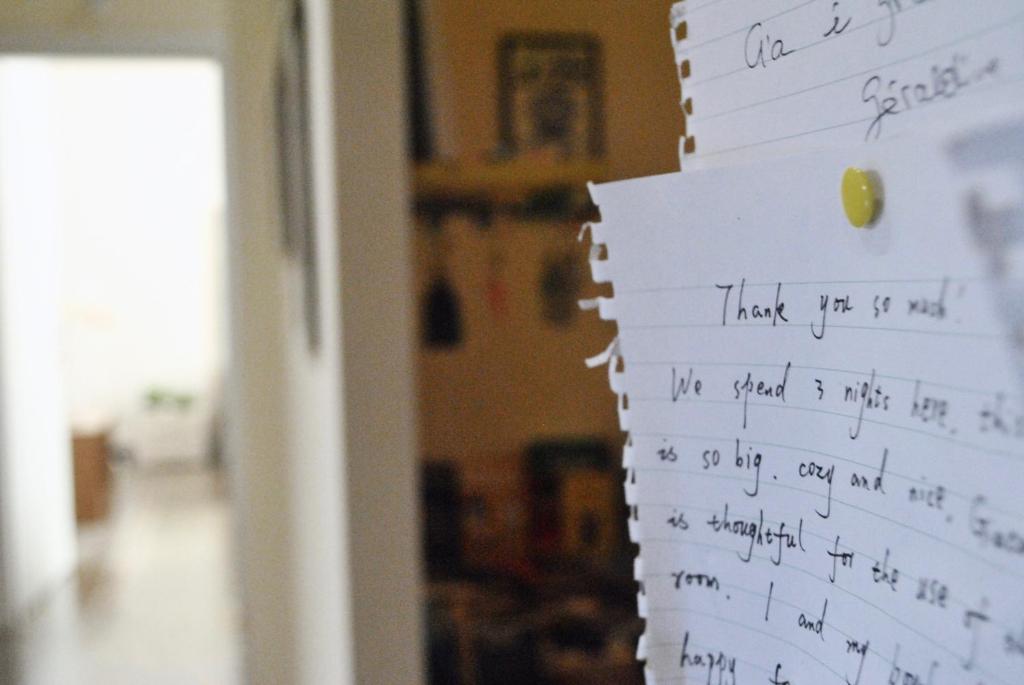 Gia è
Géraldine
Thank you so much!
We spend 3 nights here. this
is so big. cozy and nice.
is thoughtful for the use of
room. I and my
happy